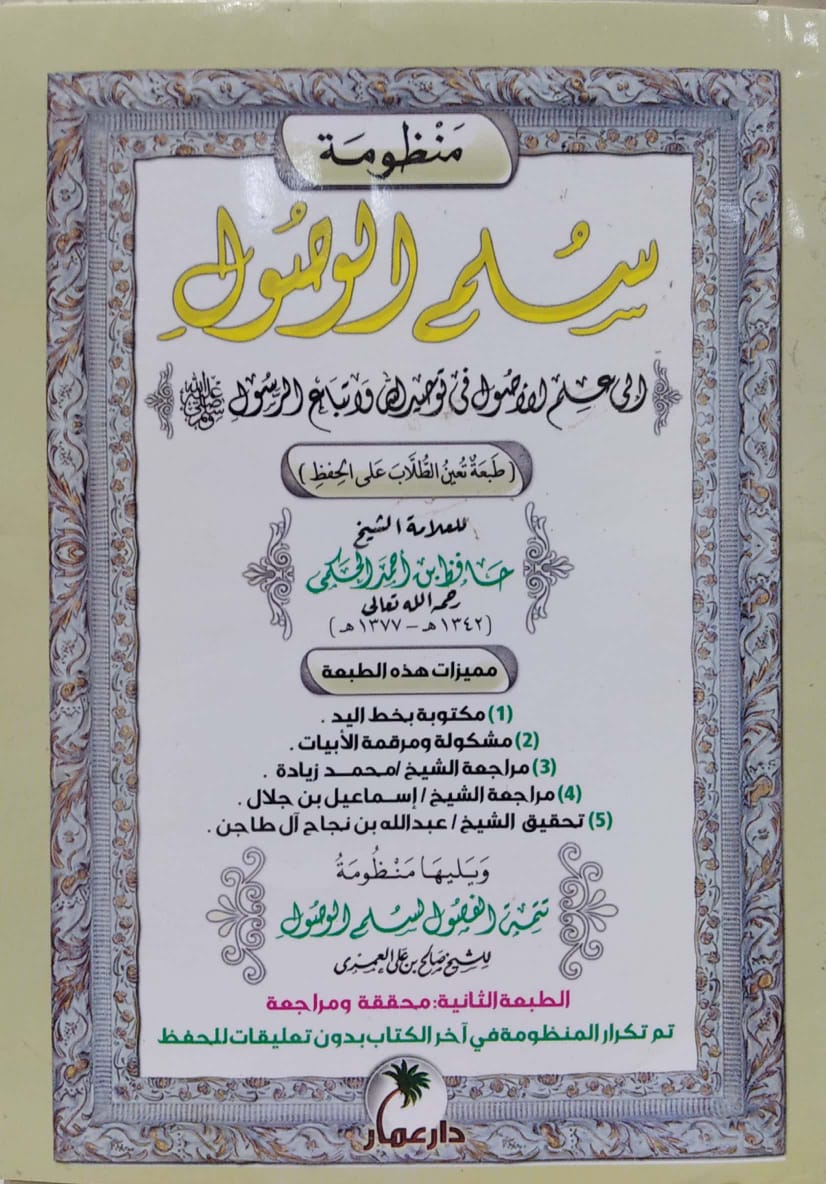 مَنْظومَة
سُلم الوصُولِ
إلى علم الأصُول في توحيد الله واتباع الرسُول ﷺ
( طَبعَةٌ تُعينُ الطُّلَّابَ عَلى الحِفظِ )
للعلامة الشيخ
حافظ بن أحمد الحكمي
رحمه الله تعالى
(١٣٤٢هـ - ١٣٧٧هـ)
مميزات هذه الطبعة
(1) مكتوبة بخط اليد .
(2) مشكولة ومرقمة الأبيات .
(3) مراجعة الشيخ /محمـــد زيادة .
(4) مراجعة الشيخ / إسـماعيل بن جلال .
(5) تحقيق الشيخ / عبدالله بن نجاح آل طاجن .
وَيَليهَا مَنْظُومَةُ
تتمة الفصُول لسُلم الوصُول
للشيخ صالح بن علي العمري
الطبعة الثانية: محققة ومراجعة
تم تكرار المنظومة في آخر الكتاب بدون تعليقات للحفظ
دار عمار